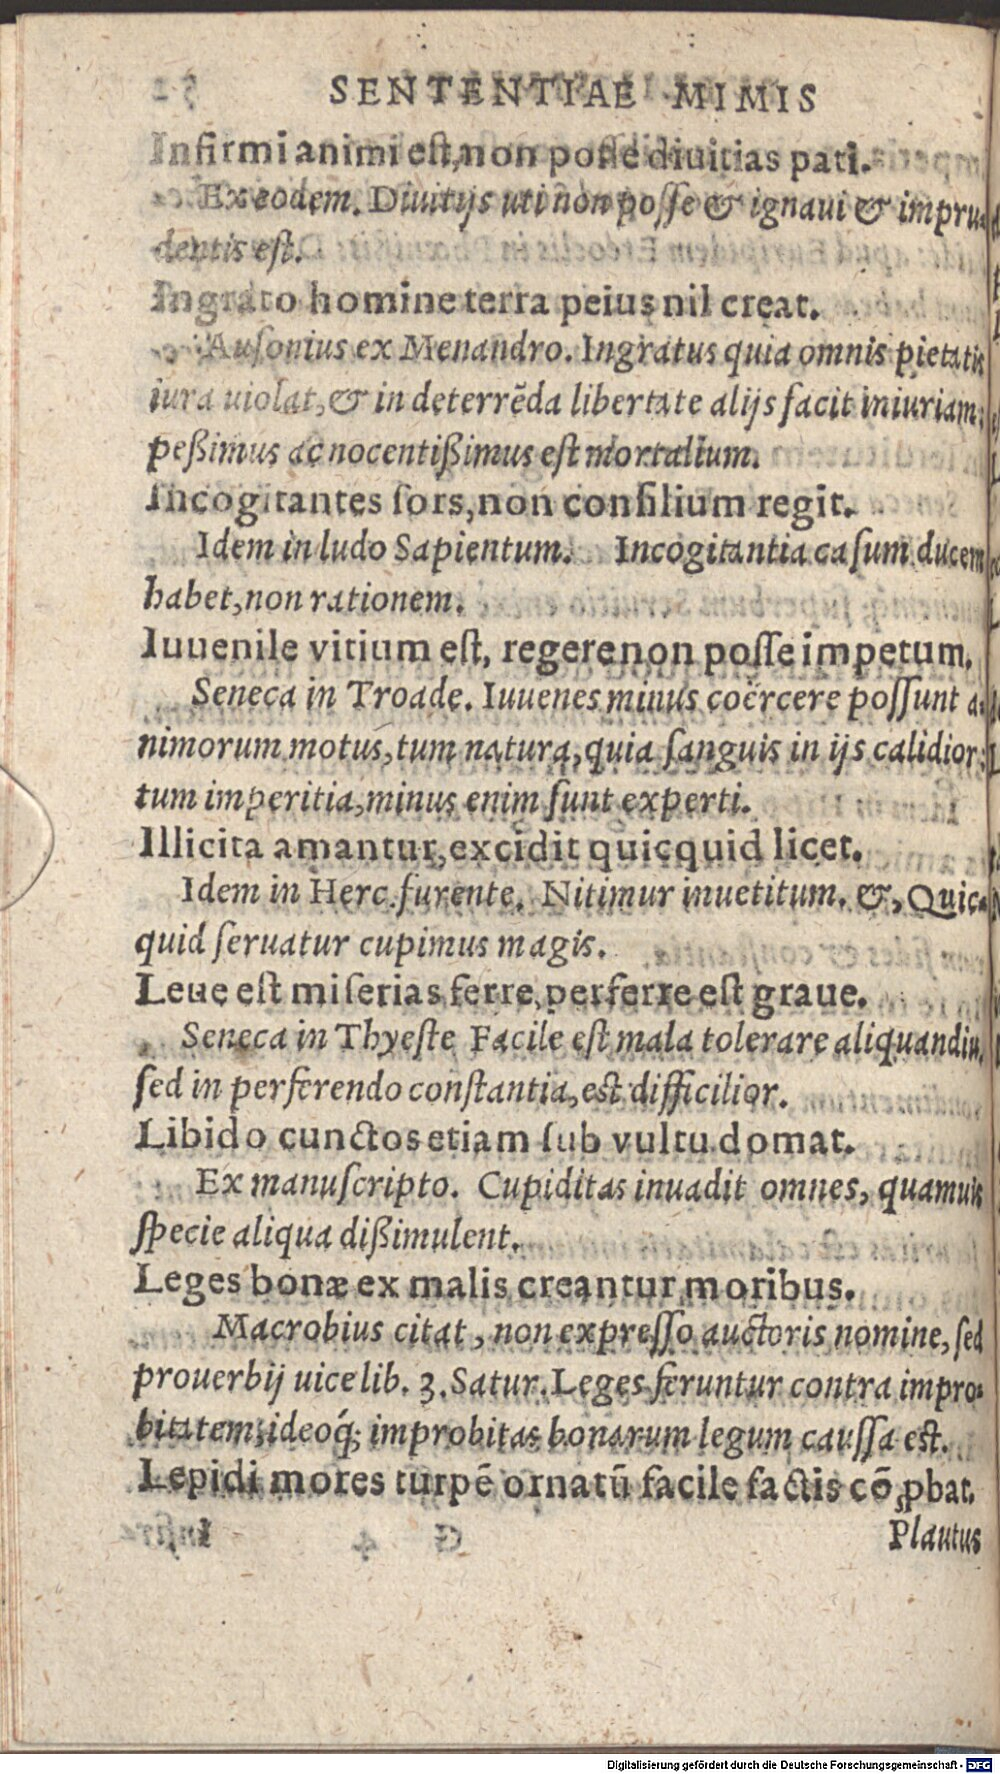 SENTENTIAE MIMIS
Infirmi animi est, non posse diuitias pati.
Ex eodem. Diuitijs uti non posse & ignaui & impru-
dentis est.
Ingrato homine terra peius nil creat.
Ausonius ex Menandro. Ingratus quia omnis pietatis
iura uiolat, & in deterrēda libertate alijs facit iniuriam,
peßimus ac nocentißimus est mortalium.
Incogitantes sors, non consilium regit.
Idem in ludo Sapientum. Incogitantia casum ducem
habet, non rationem.
Iuuenile vitium est, regere non posse impetum.
Seneca in Troade. Iuuenes minus coërcere possunt a-
nimorum motus, tum natura, quia sanguis in ijs calidior:
tum imperitia, minus enim sunt experti.
Illicita amantur, excidit quicquid licet.
Idem in Herc. furente. Nitimur in uetitum. &, Quic-
quid seruatur cupimus magis.
Leue est miserias ferre, perferre est graue.
Seneca in Thyeste Facile est mala tolerare aliquandiu,
sed in perferendo constantia, est difficilior.
Libido cunctos etiam sub vultu domat.
Ex manuscripto. Cupiditas inuadit omnes, quamuis
specie aliqua dißimulent.
Leges bonæ ex malis creantur moribus.
Macrobius citat, non expresso auctoris nomine, sed
prouerbij uice lib. 3. Satur. Leges feruntur contra impro-
bitatem, ideoq́; improbitas bonarum legum caussa est.
Lepidi mores turpē ornatū facile factis cō ꝓbat.
Plautus
Digitalisierung gefördert durch die Deutsche Forschungsgemeinschaft - DFG